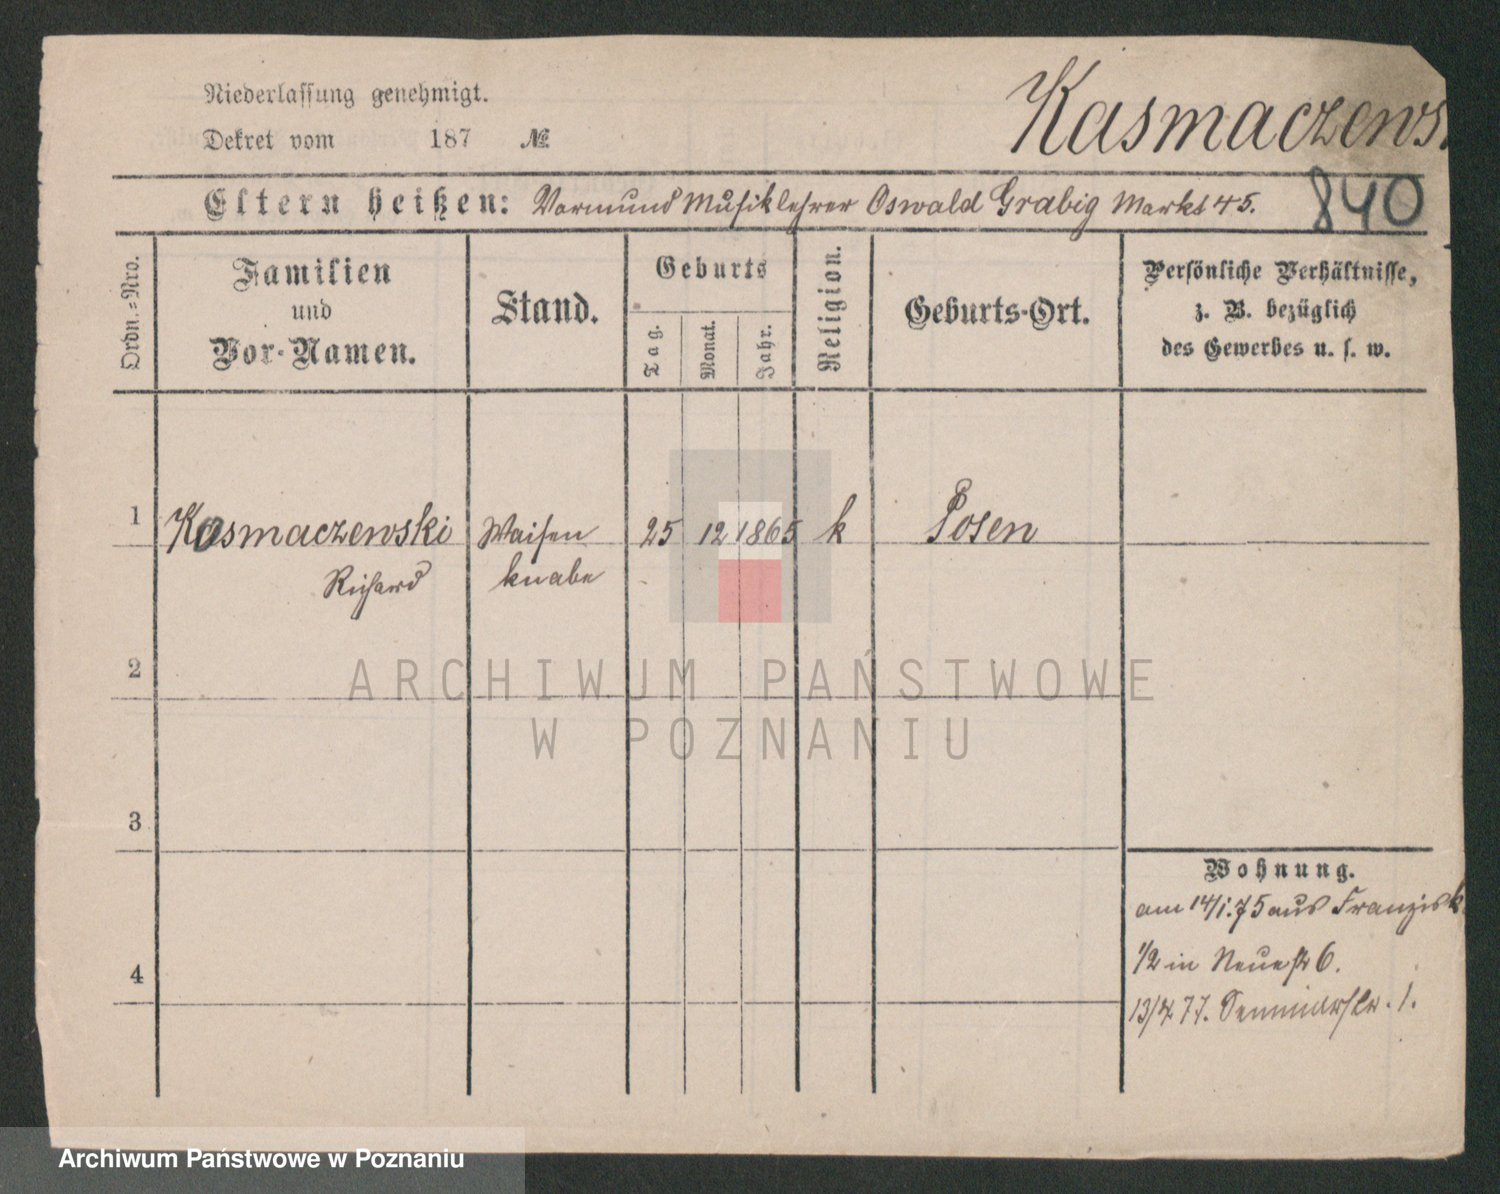 Niederlassung genehmigt.
Dekret vom 187 №
Kasmaczews
Eltern heißen: Vormund Musiklehrer Oswald Grabig Markt 45.
840
Ordn.=Nro.
Familien
und
Vor-Namen.
Stand.
Geburts
Tag.
Monat.
Jahr.
Religion.
Geburts-Ort.
Persönliche Verhältnisse,
z. B. bezüglich
des Gewerbes u. s. w.
1 Kosmaczewski Waisen 25 12 1865 k Posen
Richard knabe
2
3
4
Wohnung.
am 14/1.75 aus Franzisk
1/2 in Neue str 6.
13/4 77. Seminarstr. 1.
ARCHIWUM PAŃSTWOWE
W POZNANIU
Archiwum Państwowe w Poznaniu